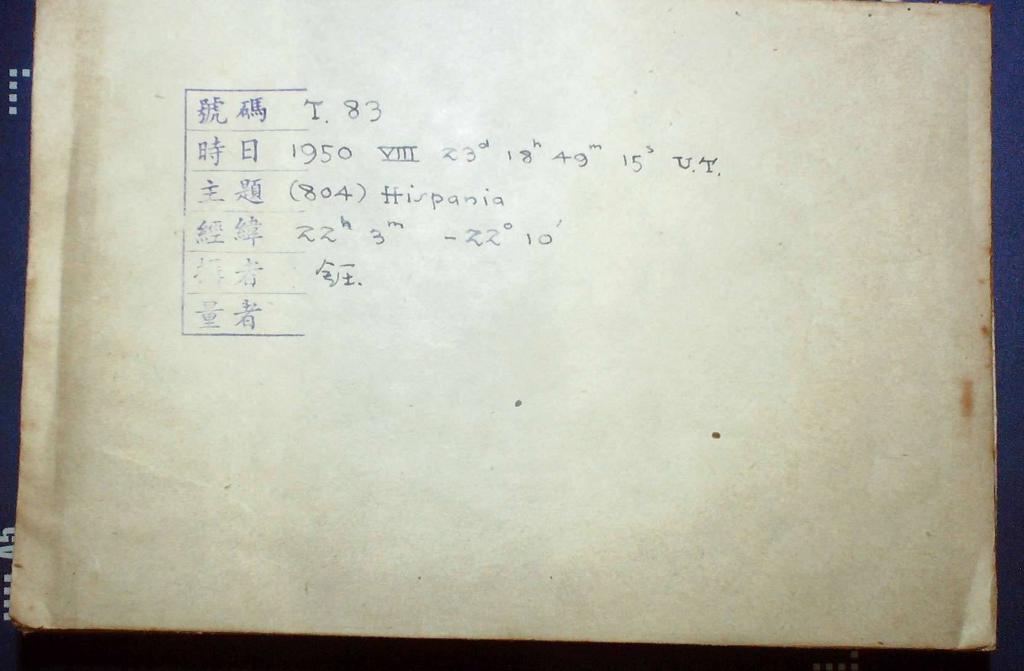 號碼 T. 83
時日 1950 VIII 23ᵈ 18ʰ 49ᵐ 15ˢ U.T.
主題 (804) Hispania
經緯 22ʰ 3ᵐ -22° 10′
者
量者